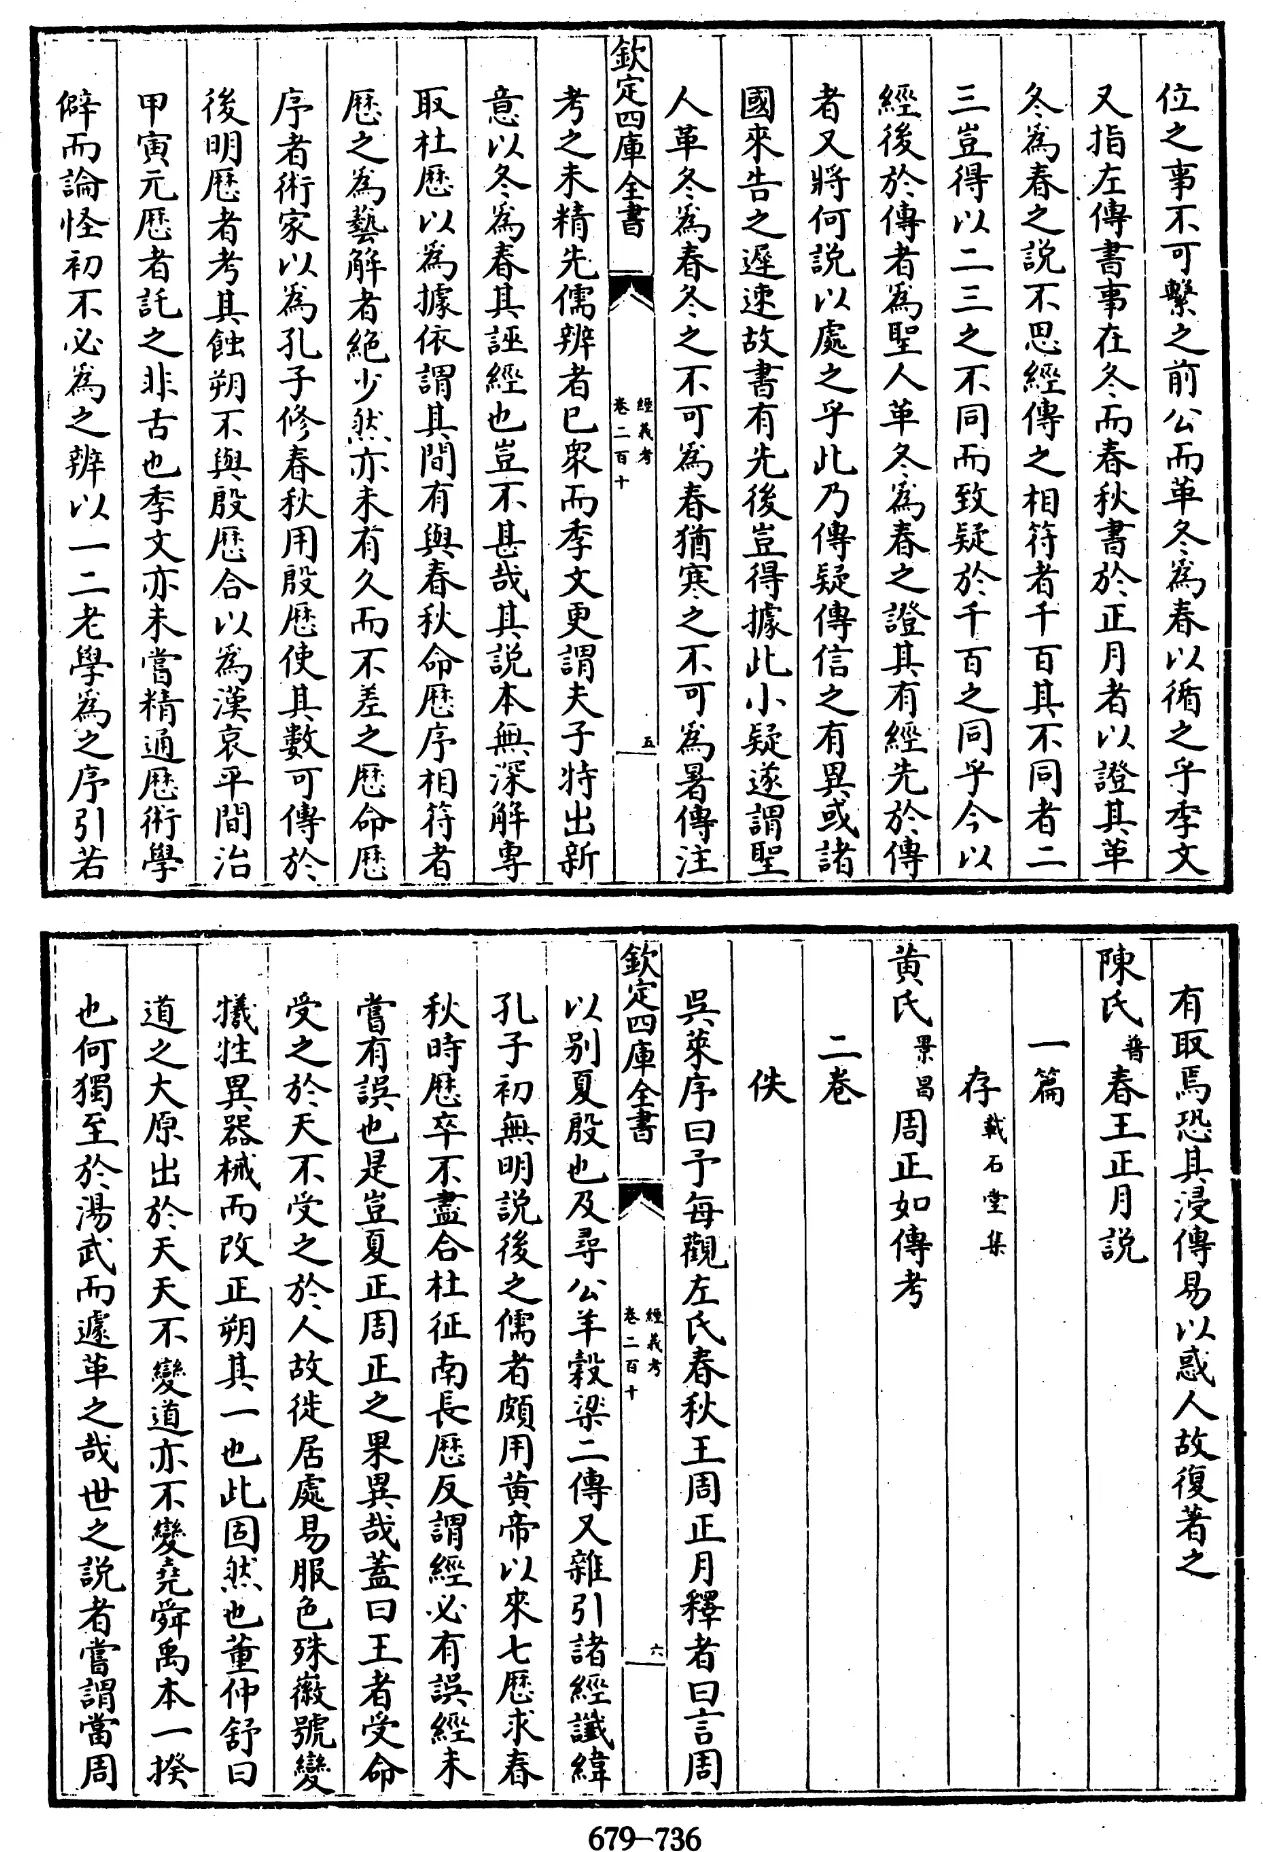 位之事不可繫之前公而革冬為春以循之乎季文
又指左傳書事在冬而春秋書於正月者以證其革
冬為春之説不思經傳之相符者千百其不同者二
三豈得以二三之不同而致疑於千百之同乎今以
經後於傳者為聖人革冬為春之證其有經先於傳
者又將何説以處之乎此乃傳疑傳信之有異或諸
國來告之遲速故書有先後豈得據此小疑遂謂聖
人革冬為春冬之不可為春猶寒之不可為暑傳注
欽定四庫全書
經義考
卷二百十
五
考之未精先儒辨者已衆而季文更謂夫子特出新
意以冬為春其誣經也豈不甚哉其説本無深解専
取杜厯以為據依謂其間有與春秋命厯序相符者
厯之為藝解者絶少然亦未有久而不差之厯命厯
序者術家以為孔子修春秋用殷厯使其數可傳於
後明厯者考其蝕朔不與殷厯合以為漢哀平間治
甲寅元厯者託之非古也季文亦未嘗精通厯術學
僻而論怪初不必為之辨以一二老學為之序引若
有取焉恐其浸傳易以惑人故復著之
陳氏普春王正月説
一篇
存載石堂集
黄氏景昌周正如傳考
二卷
佚
吳萊序曰予毎觀左氏春秋王周正月釋者曰言周
欽定四庫全書
經義考
卷二百十
六
以别夏殷也及尋公羊穀梁二傳又雜引諸經讖緯
孔子初無明説後之儒者頗用黄帝以來七厯求春
秋時厯卒不盡合杜征南長厯反謂經必有誤經未
嘗有誤也是豈夏正周正之果異哉蓋曰王者受命
受之於天不受之於人故徙居處易服色殊徽號變
犧牲異器械而改正朔其一也此固然也董仲舒曰
道之大原出於天天不變道亦不變堯舜禹本一揆
也何獨至於湯武而遽革之哉世之説者嘗謂當周
679-736